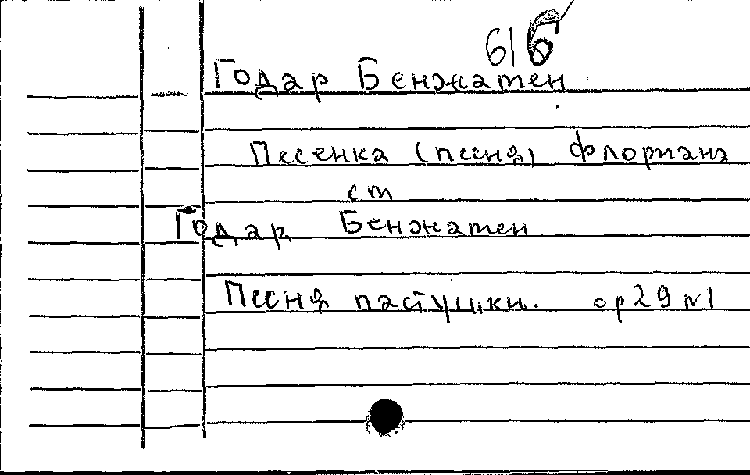 616
Годар Бенжамен
Песенка (песня) Флориана
см
Годар Бенжамен
Песня пастушки. ор 29 №1